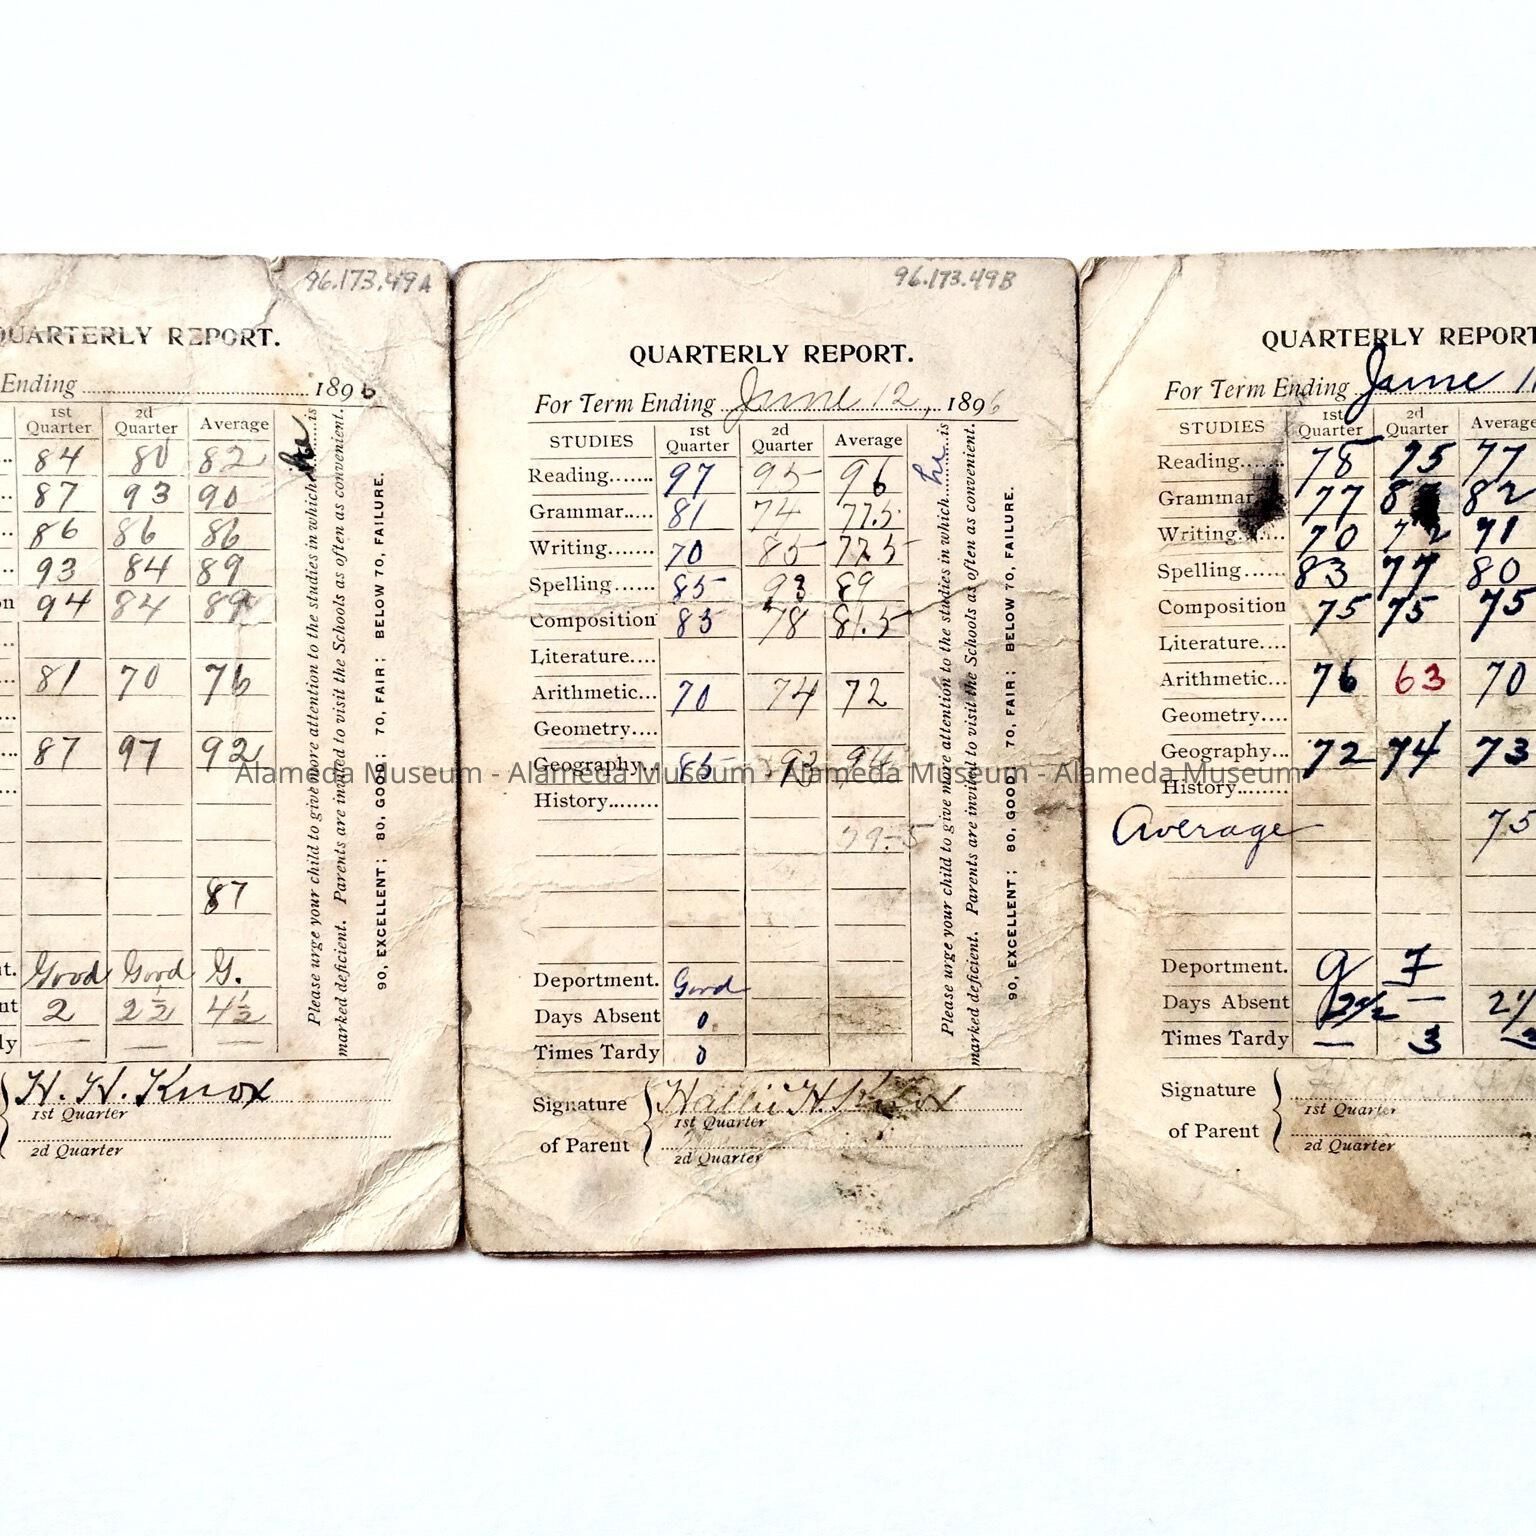 96.173.49A
QUARTERLY REPORT.
Ending 1896
1st Quarter 2d Quarter Average
84 80 82
87 93 90
86 86 86
93 84 89
on 94 84 89
81 70 76
87 97 92
87
t. Good Good G.
nt 2 2½ 4½
ly — — —
H. H. Knox
1st Quarter
2d Quarter
Please urge your child to give more attention to the studies in which he is
marked deficient. Parents are invited to visit the Schools as often as convenient.
90, EXCELLENT; 80, GOOD; 70, FAIR; BELOW 70, FAILURE.
96.173.49B
QUARTERLY REPORT.
For Term Ending June 12, 1896
STUDIES 1st Quarter 2d Quarter Average
Reading....... 97 95 96
Grammar..... 81 74 77.5
Writing....... 70 85 77.5
Spelling...... 85 93 89
Composition 85 78 81.5
Literature....
Arithmetic... 70 74 72
Geometry....
Geography... 85 93 94
History........
79.5
Deportment. Good
Days Absent 0
Times Tardy 0
Signature of Parent
Hallie H. Knox
1st Quarter
2d Quarter
Please urge your child to give more attention to the studies in which he is
marked deficient. Parents are invited to visit the Schools as often as convenient.
90, EXCELLENT; 80, GOOD; 70, FAIR; BELOW 70, FAILURE.
QUARTERLY REPORT
For Term Ending June 1
STUDIES 1st Quarter 2d Quarter Average
Reading....... 78 75 77
Grammar 77 82
Writing..... 70 72 71
Spelling...... 83 77 80
Composition 75 75 75
Literature....
Arithmetic... 76 63 70
Geometry....
Geography... 72 74 73
History........
Average 75
Deportment. G F
Days Absent 2½ — 2½
Times Tardy — 3 3
Signature of Parent
1st Quarter
2d Quarter
Alameda Museum - Alameda Museum - Alameda Museum - Alameda Museum